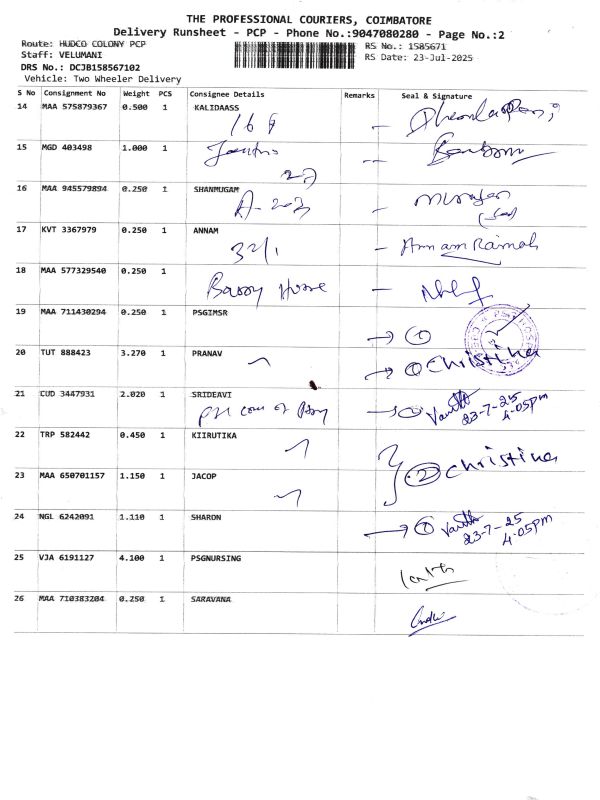 THE PROFESSIONAL COURIERS, COIMBATORE
Delivery Runsheet - PCP - Phone No.:9047080280 - Page No.:2
Route: HUDCO COLONY PCP
RS No.: 1585671
Staff: VELUMANI
RS Date: 23-Jul-2025
DRS No.: DCJB158567102
Vehicle: Two Wheeler Delivery
S No Consignment No Weight PCS Consignee Details Remarks Seal & Signature
14 MAA 575879367 0.500 1 KALIDAASS
15 MGD 403498 1.000 1
16 MAA 945579894 0.250 1 SHANMUGAM
A-203
17 KVT 3367979 0.250 1 ANNAM
32/1 - Annam Ramah
18 MAA 577329540 0.250 1
19 MAA 711430294 0.250 1 PSGIMSR
→ ①
20 TUT 888423 3.270 1 PRANAV
→ ① Christina
21 CUD 3447931 2.020 1 SRIDEAVI
23-7-25
4.05pm
22 TRP 582442 0.450 1 KIIRUTIKA
② Christina
23 MAA 650701157 1.150 1 JACOP
24 NGL 6242091 1.110 1 SHARON
→ ①
23-7-25
4.05pm
25 VJA 6191127 4.100 1 PSGNURSING
26 MAA 710383204 0.250 1 SARAVANA